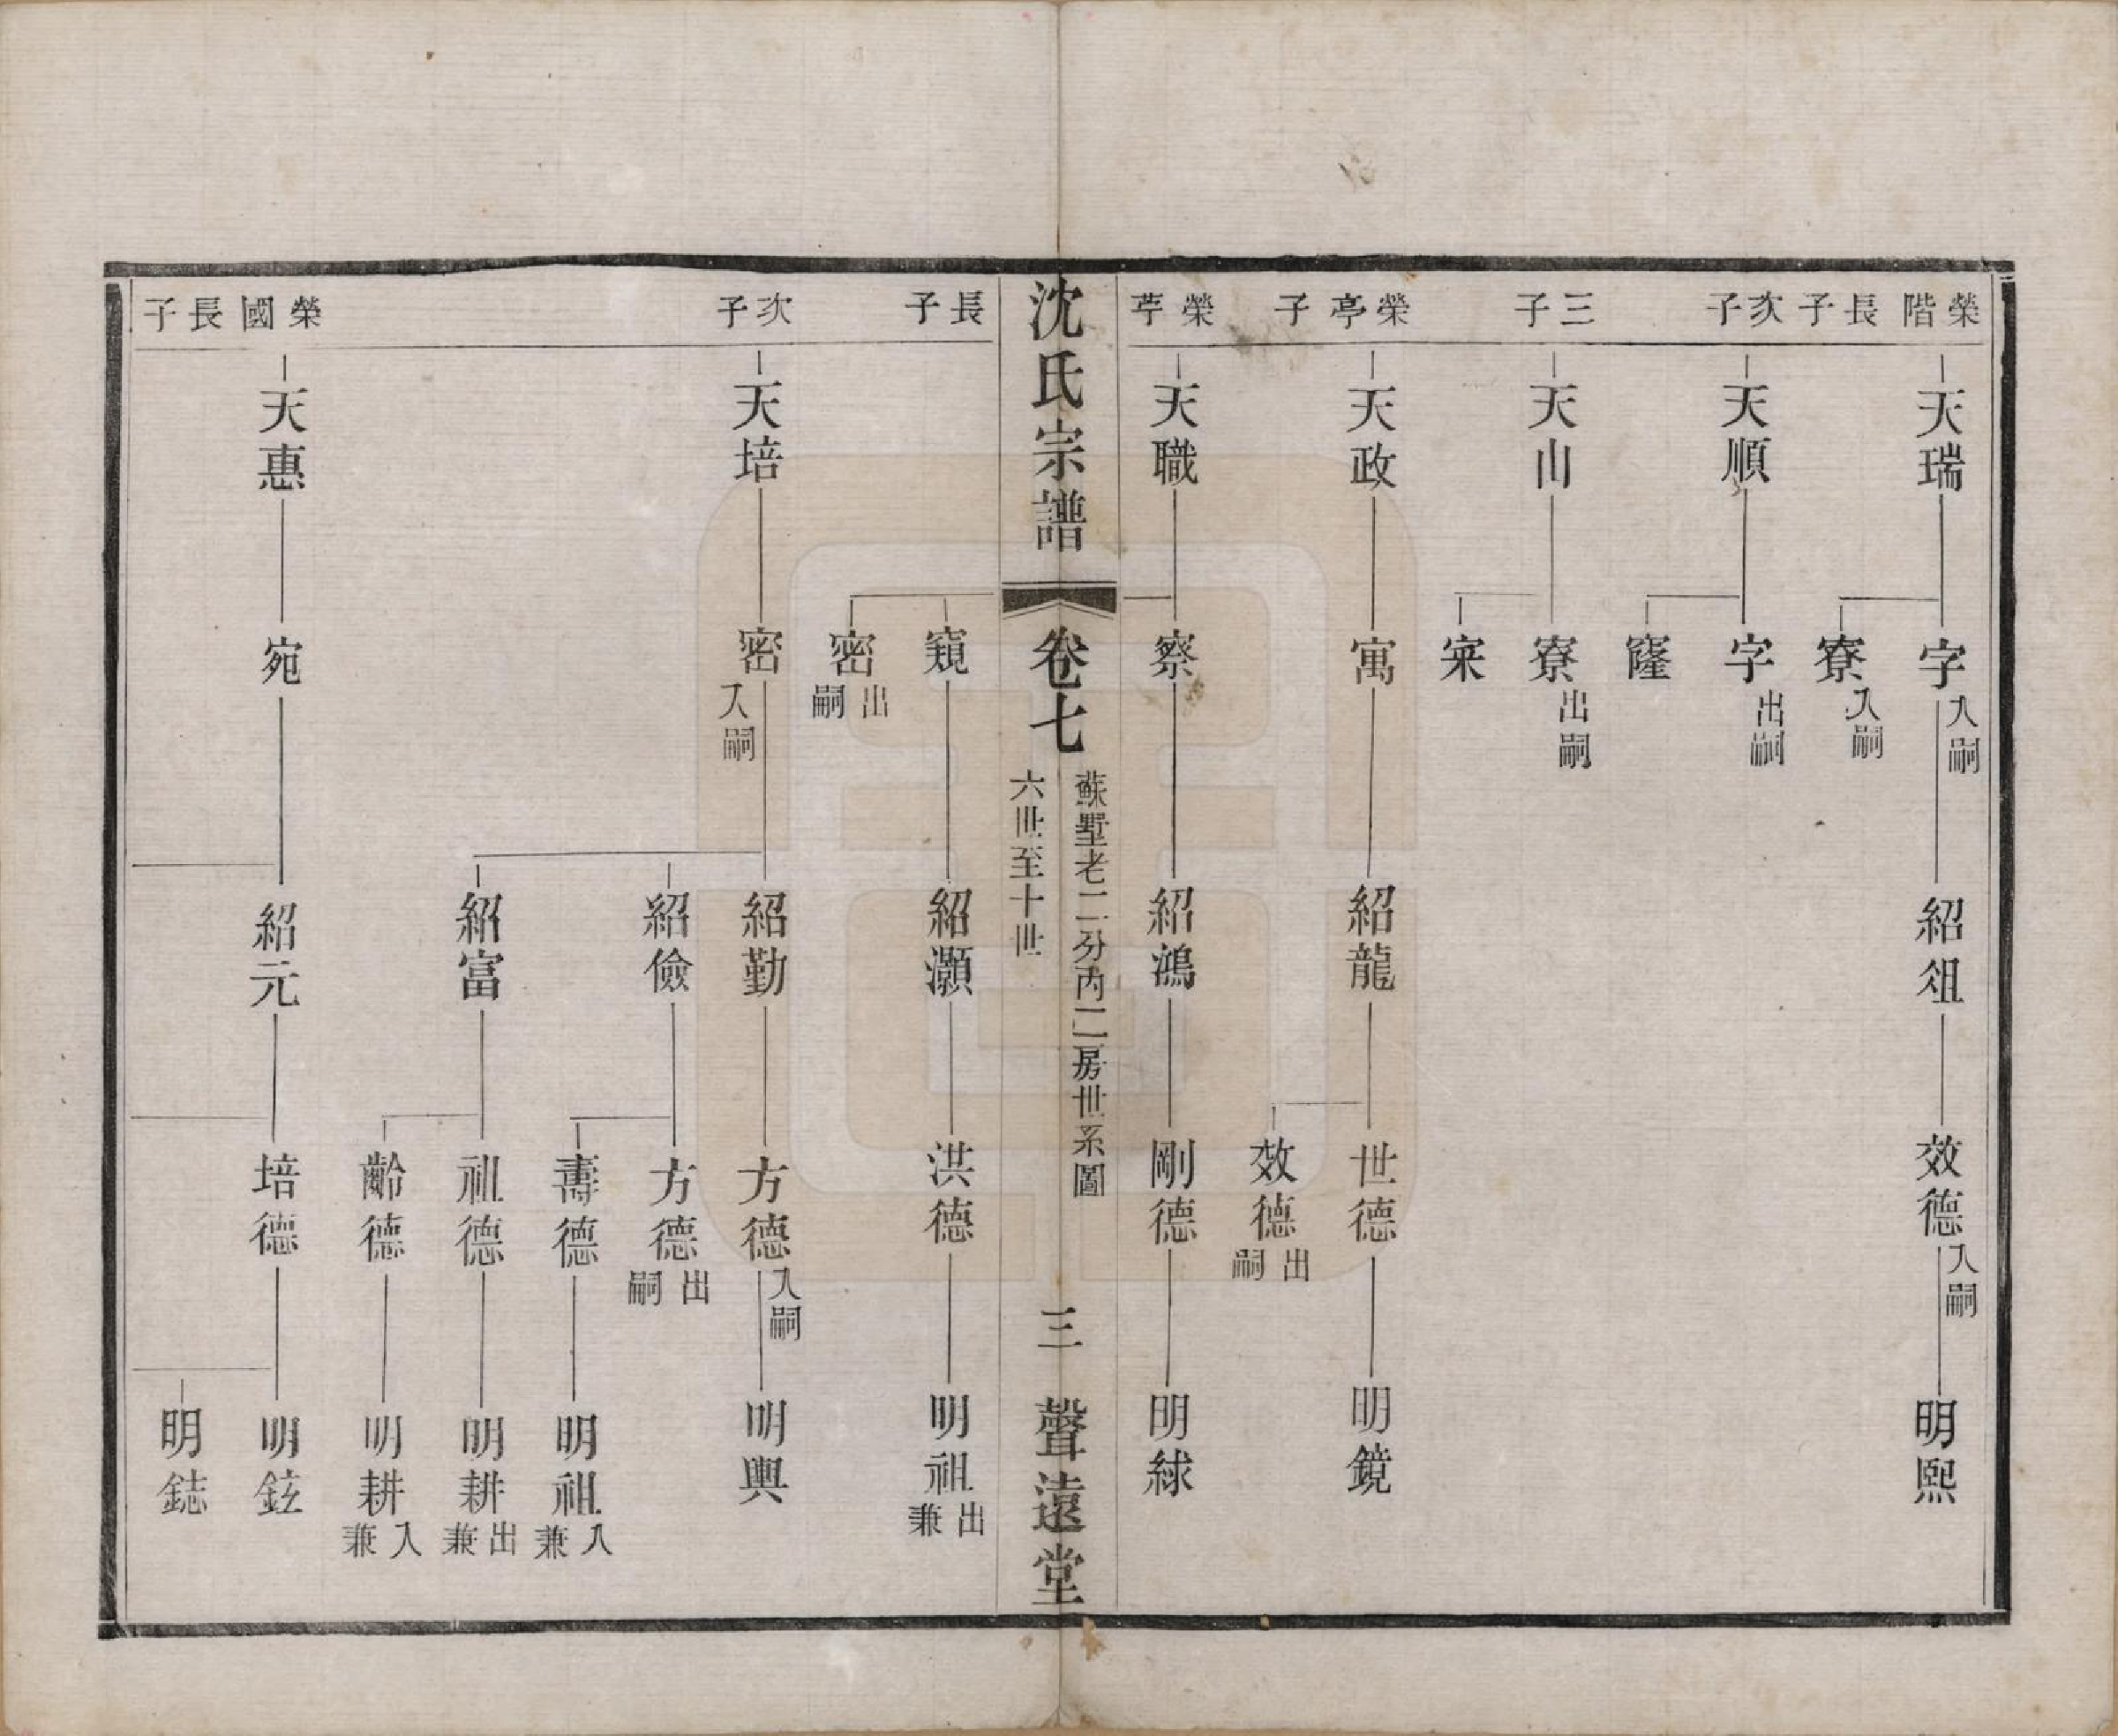 榮階長子
天瑞
字入嗣
紹祖
效德入嗣
明熙
寮入嗣
次子
天順
字出嗣
窿
三子
天山
寮出嗣
寀
榮亭子
天政
寓
紹龍
世德
明鏡
效德出嗣
榮荢
天職
察
紹鴻
剛德
明絿
沈氏宗譜
卷七
蘇墅老二分丙二房世系圖
六世至十世
三
聲遠堂
長子
窺
紹灝
洪德
明祖出兼
密出嗣
次子
天培
密入嗣
紹勤
方德入嗣
明興
紹儉
方德出嗣
壽德
明祖入兼
紹富
祖德
明耕出兼
齡德
明耕入兼
榮國長子
天惠
宛
紹元
培德
明鉉
明鋕